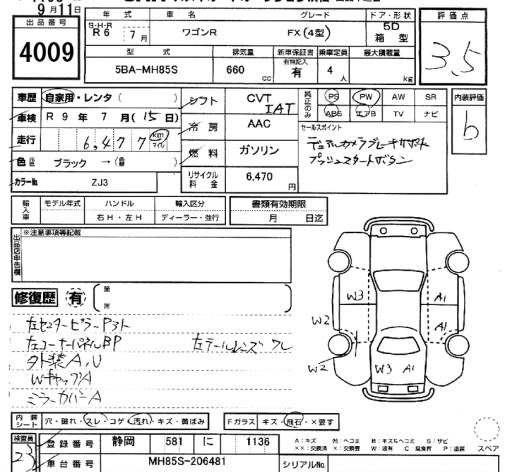 9月11日
出品番号 年式 車名 グレード ドア・形状 評価点
4009
S・H・R R6 年 7月 ワゴンR FX(4型) 5D 箱型 3.5
型式 排気量 新車保証書 有無記入 乗車定員 最大積載量
5BA-MH85S 660 cc 有 4人 kg
車歴 自家用・レンタ( ) シフト CVT IAT 純正のみ PS PW AW SR 内装評価
車検 R 9年 7月(15日) 冷房 AAC ABS エアB TV ナビ b
走行 6,477 km マイル 燃料 ガソリン セールスポイント
デュアルカメラブレーキサポート
プッシュスタートボタン
色 ブラック →( )
カラー№ ZJ3 リサイクル料金 6,470円
輸入車 モデル年式 ハンドル 輸入区分 書類有効期限
右H・左H ディーラー・並行 月 日迄
出品店申告欄 ※注意事項等記載
修復歴 有 箇所
左センターピラーアウト
左コーナーパネルBP 左テールレンズワレ
外装A,U
WキャップA
ミラーカバーA
W3 A1
W2 A1
W2 W3 A1
内装シート 穴・破れ・スレ・コゲ・汚れ・キズ・黄ばみ Fガラス キズ・飛石・×要す
スペア
検査員 23 登録番号 静岡 581 に 1136
A:キズ U:ヘコミ B:キズ&ヘコミ S:サビ
××:交換済 ×:要交換 W:波有 C:腐食有 P:塗装
車台番号 MH85S-206481 シリアル№